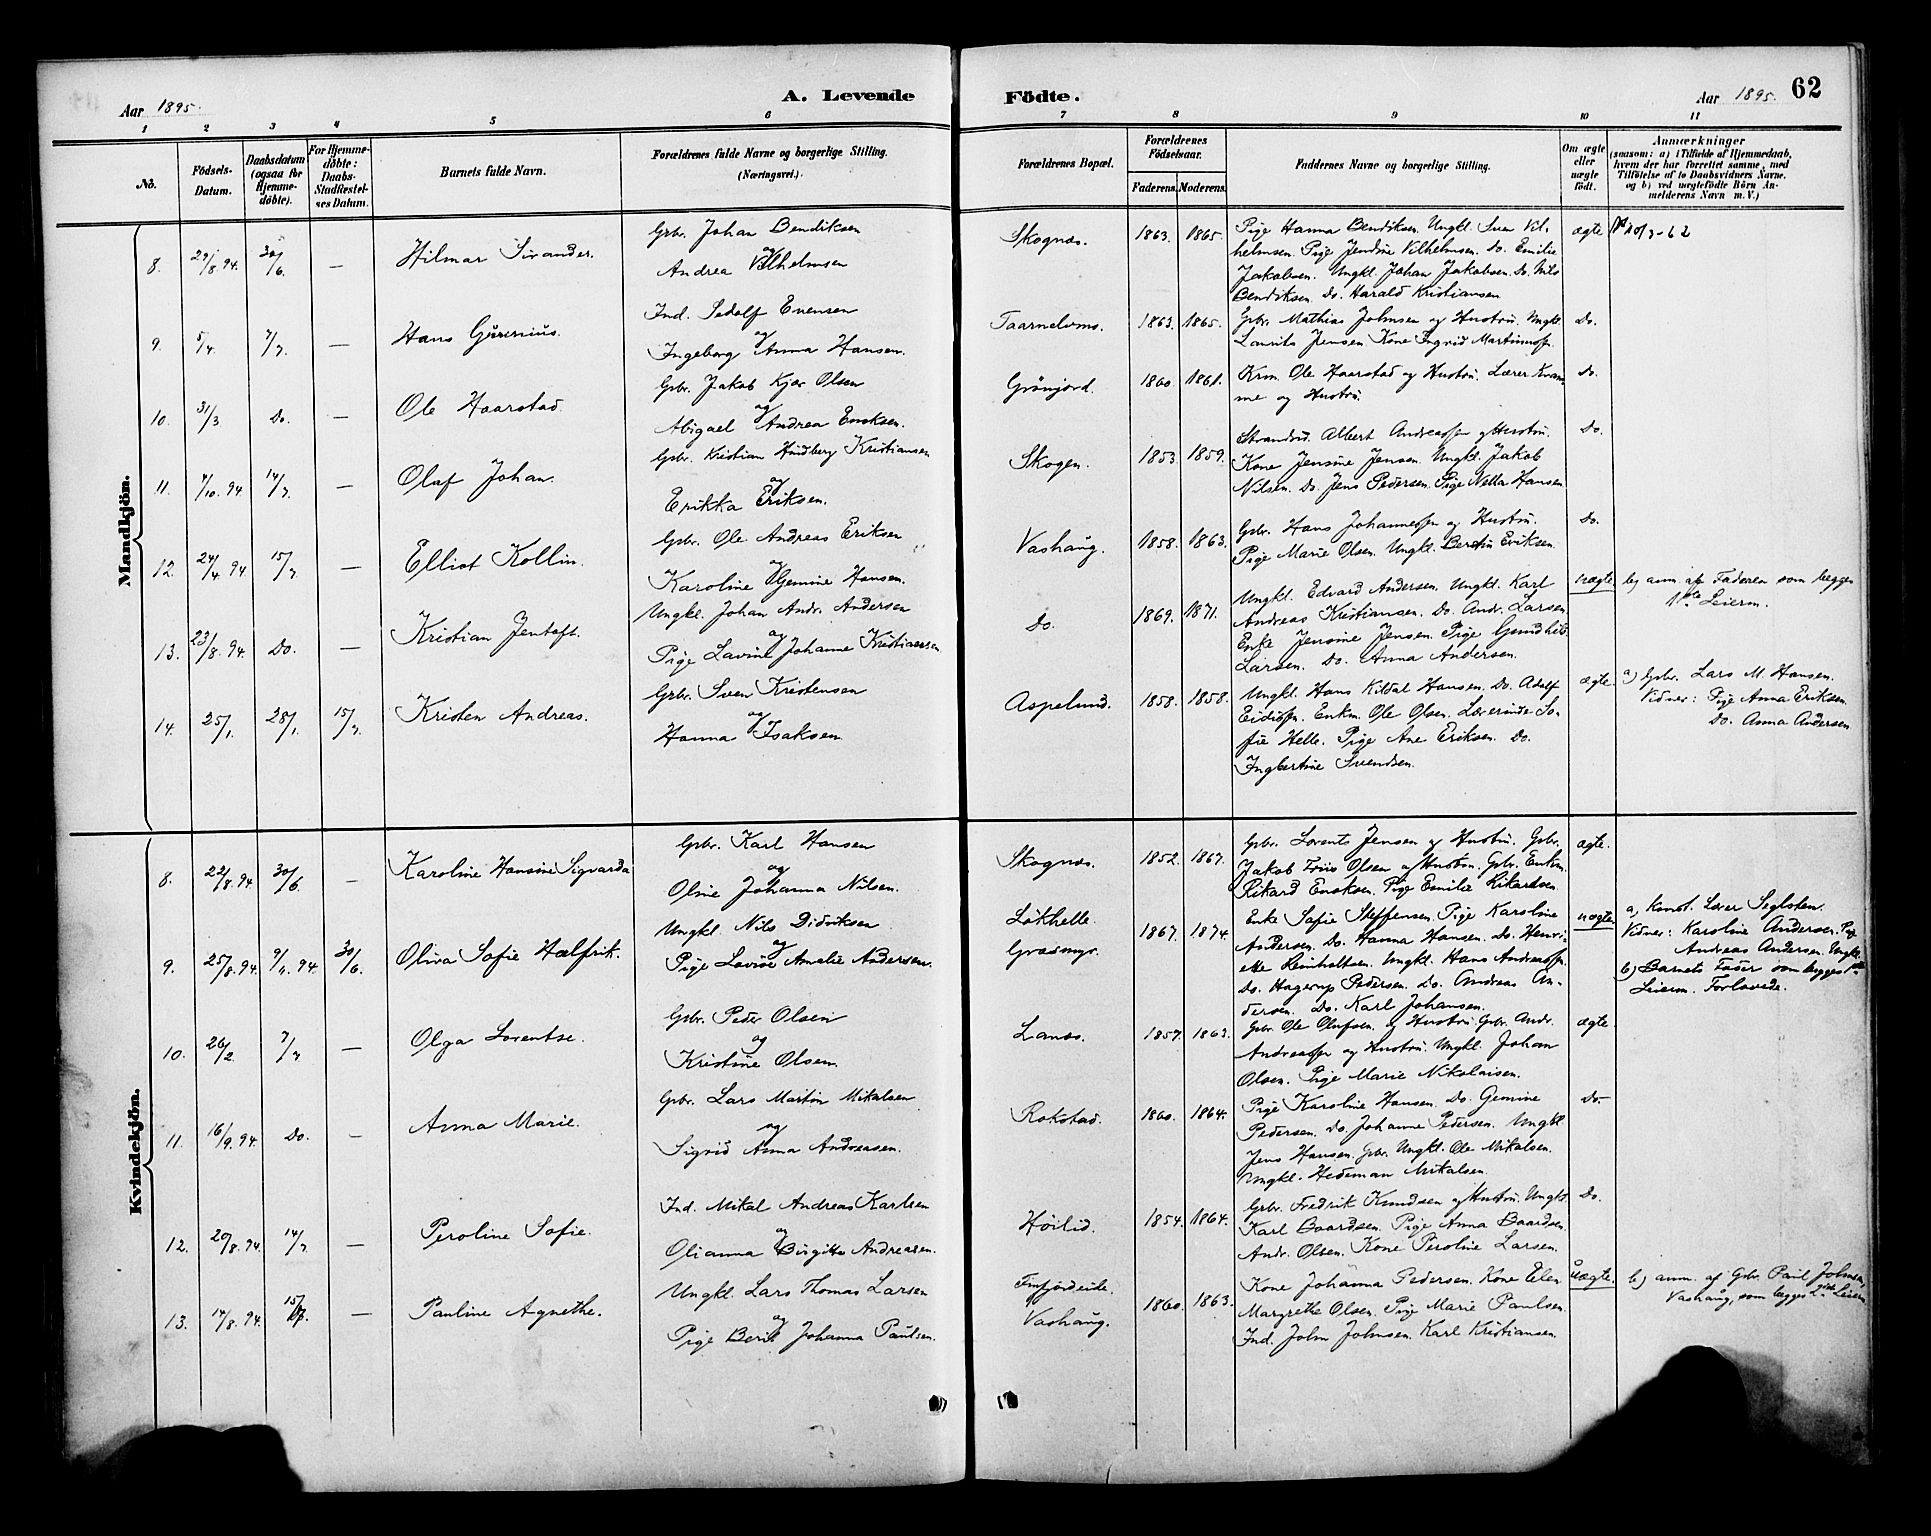 Aar 1895.
A. Levende
Födte.
Aar 1895.
62
1 2 3 4 5 6 7 8 9 10 11
No.
Födsels-Datum.
Daabsdatum (ogsaa for Hjemme-döbte).
For Hjemme-döbte: Daabs-Stadfæstel-ses Datum.
Barnets fulde Navn.
Forældrenes fulde Navne og borgerlige Stilling. (Næringsvei.)
Forældrenes Bopæl.
Forældrenes Födselsaar.
Faderens. Moderens.
Faddernes Navne og borgerlige Stilling.
Om ægte eller uægte födt.
Anmærkninger
(saasom: a) i Tilfælde af Hjemmedaab, hvem der har forrettet samme, med Tilföielse af to Daabsvidners Navne, og b) ved uægtefödte Börn An-melderens Navn m. V.)
Mandkjön.
8. 29/8 94. 30/6. — Hilmar Sivander.
Gbr. Johan Bendiksen
og
Andrea Vilhelmsen
Skognæs. 1863. 1865.
Pige Hanna Bendiksen. Ungkl. Sven Vil-
helmsen. Pige Jendine Vilhelmsen. Do. Emilie
Jakobsen. Ungkl. Johan Jakobsen. Do. Nils
Bendiksen. Do. Harald Kristiansen
ægte
9. 5/4. 7/7. — Hans
Ind. Sedolf Evensen
og
Ingeborg Anna Hansen.
1863. 1865.
Gbr. Mathias Johnsen og Hustru. Ungkl.
Laurits Jensen Kone Ingrid
Do.
10. 31/3. Do. — Ole Haarstad.
Gbr. Jakob Kjær Olsen
og
Abigael Andrea Enoksen.
Grönjord. 1860. 1861.
Krm. Ole Haarstad og Hustru. Lærer Kvam-
me og Hustru.
Do.
11. 7/10. 94 14/7. — Olaf Johan.
Gbr. Kristian Hindberg Kristiansen
og
Erikka Eriksen.
Skogen. 1853. 1859.
Albert Andreassen og Hustru.
Kone Jensine Jensen. Ungkl. Jakob
Nilsen. Do. Jens Pedersen. Pige Nella Hansen
Do.
12. 24/4. 94 15/7. — Elliot Kollin.
Gbr. Ole Andreas Eriksen
og
Karoline Gjemine Hansen.
Vashaug. 1858. 1863.
Gbr. Hans Johannessen og Hustru.
Pige Marie Olsen. Ungkl. Eriksen.
Do.
13. 23/8. 94. Do. — Kristian Jentoft.
Ungkl. Johan Andr. Andersen
og
Pige Lavine Johanne Kristiansen
Do. 1869. 1871.
Ungkl. Edvard Andersen. Ungkl. Karl
Andreas Kristiansen. Do. Andr. Larsen
Enke Jensine Jensen. Pige Gundhild
Larsen. Do. Anna Andersen.
uægte
b) anm. af Faderen som begges
1ste Leierm.
14. 25/1. 28/1. 15/7. Kristen Andreas.
Gbr. Sven Kristensen
og
Hanna Isaksen.
Aspelund. 1858. 1858.
Ungkl. Hans Kildal Hansen. Do. Adolf
Enkm. Ole Olsen. Lærerinde So-
fie Helle. Pige Ane Eriksen. Do.
Ingbertine Svendsen.
ægte.
a) Gbr. Lars M. Hansen.
Vidner: Pige Anna Eriksen.
Do. Anna Andersen
Kvindekjön.
8. 22/8. 94 30/6. — Karoline Hansine Sigvarda
Gbr. Karl Hansen
og
Oline Johanna Nilsen.
Skognæs. 1852. 1867.
Gbr. Lorents Jensen og Hustru. Gbr.
Jakob Friis Olsen og Hustru. Gbr. Enkm.
Rikard Enoksen. Pige Emilie Rikardsen.
ægte.
9. 25/8. 94. 9/11. 94. 30/6. Oliva Sofie Halfrik.
Ungkl. Nils Didriksen
og
Pige Lovise Amalie Andersen.
Lökhelle.
Græsmyr. 1867. 1874.
Enke Sofie Steffensen. Pige Karoline
Andersen. Do. Hanna Hansen. Do. Henri-
ette Reinholtsen. Ungkl. Hans Andreassen
Do. Hagerup Pedersen. Do. Andreas An-
dersen. Do. Karl Johansen.
uægte
a) Konst. Lærer Seglsten.
Vidner: Karoline Andersen. Pige
Andreas Andersen. Ungkl.
b) Barnets Fader som begges 1ste
Leierm. Forlovede.
10. 26/2. 7/7. — Olga Lorentse.
Gbr. Peder Olsen
og
Kristine Olsen.
Lanæs. 1857. 1863.
Gbr. Ole Olufsen. og Hustru. Gbr. Andr.
Andreassen og Hustru. Ungkl. Johan
Olsen. Pige Marie Nikolaisen.
ægte.
11. 16/9. 94. Do. — Anna Marie.
Gbr. Lars Martin Mikalsen
og
Sigrid Anna Andreasen.
Rokstad. 1860. 1864.
Pige Karoline Hansen. Do. Gemine
Pedersen. Do. Johanne Pedersen. Ungkl
Jens Hansen. Gbr. Ungkl. Ole Mikalsen.
Ungkl. Hedeman Mikalsen.
Do.
12. 20/8. 94. 14/7. — Peroline Sofie.
Ind. Mikal Andreas Karlsen
og
Olianna Birgitte Andreasen.
Höilid. 1854. 1864.
Gbr. Fredrik Knudsen og Hustru. Ungkl.
Karl Baardsen. Pige Anna Baardsen.
Andr. Olsen. Kone Peroline Larsen.
Do.
13. 14/8. 94. 15/7. — Pauline Agnethe.
Ungkl. Lars Thomas Larsen
og
Pige Berit Johanna Paulsen.
Finfjordeide.
Vashaug. 1860. 1863.
Kone Johanna Pedersen. Kone Elen
Margrethe Olsen. Pige Marie Paulsen.
Ind. John Johnsen. Karl Kristiansen.
uægte.
b) anm. af Gbr. Paul Johnsen,
Vashaug, som begges 2det Leierm.